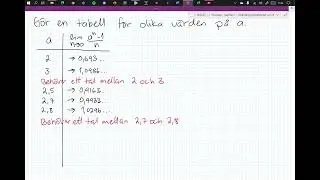 Gör en tabell för olika värden på a.
a lim n→0 aⁿ-1/n
2 → 0,693...
3 → 1,0986...
Behöver ett tal mellan 2 och 3.
2,5 → 0,9163...
2,7 → 0,9933...
2,8 → 1,0296...
Behöver ett tal mellan 2,7 och 2,8